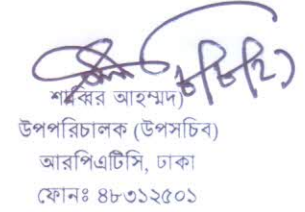 শাব্বির আহম্মদ)
উপপরিচালক (উপসচিব)
আরপিএটিসি, ঢাকা
ফোনঃ ৪৮৩১২৫০১